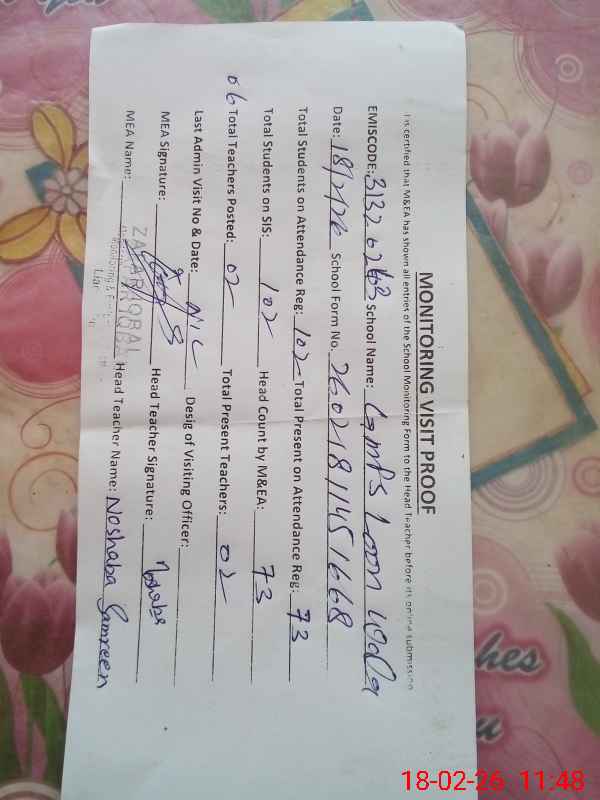 MONITORING VISIT PROOF
It is certified that M&EA has shown all entries of the School Monitoring Form to the Head Teacher before its online submission
EMISCODE: 31326263 School Name: Gmps Loon wala
Date: 18/2/26 School Form No. 260218114516 68
Total Students on Attendance Reg: 102 Total Present on Attendance Reg: 73
Total Students on SIS: 102 Head Count by M&EA: 73
06 Total Teachers Posted: 02 Total Present Teachers: 02
Last Admin Visit No & Date: NIL Desig of Visiting Officer:
MEA Signature: Head Teacher Signature: Noshaba
MEA Name: ZAFAR IQBAL Head Teacher Name: Noshaba Samreen
Monitoring &
hes
u
18-02-26 11:48